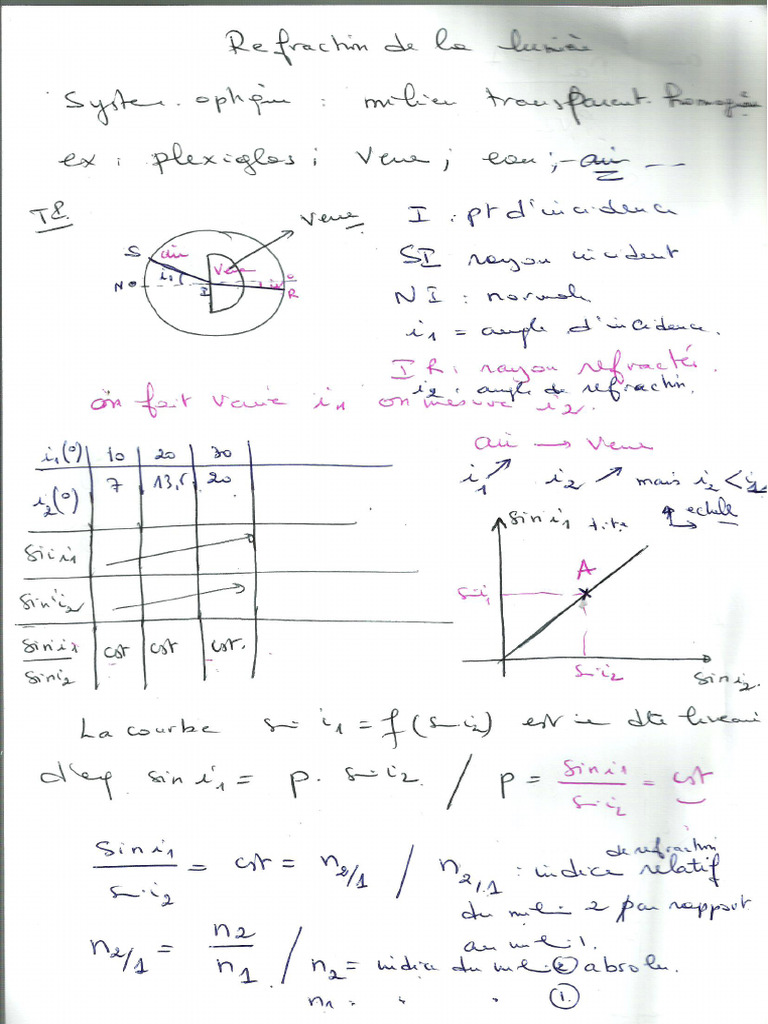 Refraction de la lumière
System. optique : milieu transparent homogène
ex : plexiglas ; Verre ; eau ; air ---
TP.
Verre
S
air
Verre
i1
N
I
i2
R
I : pt d'incidence
SI rayon incident
NI : normale
i1 = angle d'incidence.
IR : rayon refracté.
i2 : angle de refraction.
on fait varié i1 on mesure i2.
air → Verre
i1 ↗ i2 ↗ mais i2 < i1
i1(°) | 10 | 20 | 30
i2(°) | 7 | 13,5 | 20
sin i1
sin i2
sin i1 / sin i2 | cst | cst | cst.
sin i1 titre echelle
A
sin i1
sin i2
sin i2.
La courbe sin i1 = f(sin i2) est une dte lineaire
d'eq sin i1 = p. sin i2 / p = sin i1 / sin i2 = cst
sin i1 / sin i2 = cst = n2/1 / n2/1 : indice relatif de refraction
du mili 2 par rapport
au mili 1.
n2/1 = n2 / n1 / n2 = indice du mili ② absolu.
n1 : " " ①.